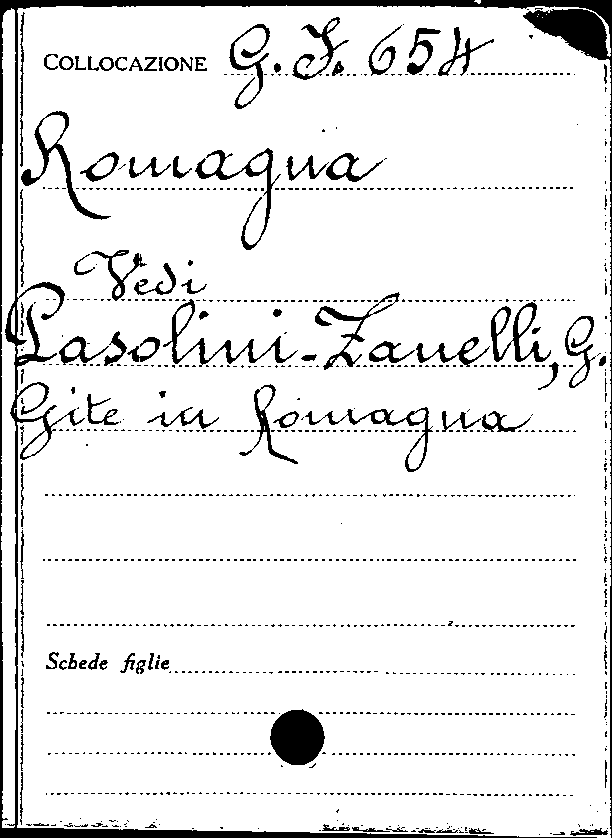 COLLOCAZIONE G. F. 654
Romagna
Vedi
Pasolini-Zanelli, G.
Gite in Romagna
Schede figlie